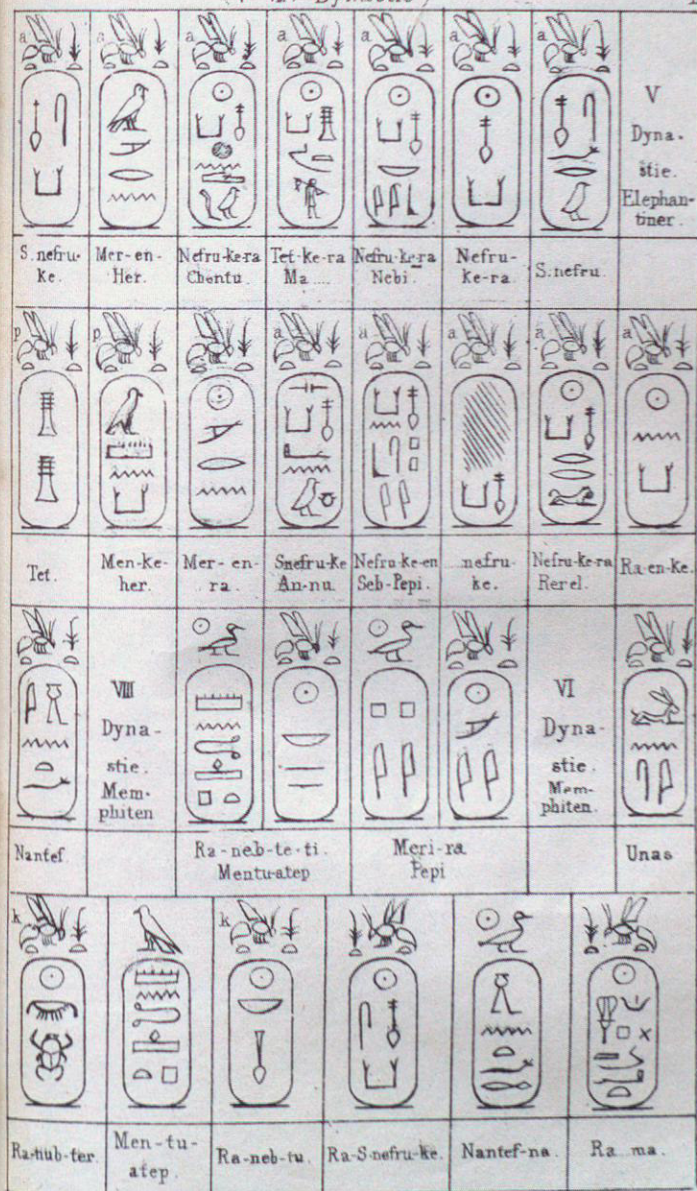 a a a a a a a
V
Dyna-
stie.
Elephan-
tiner.
S.nefru-
ke.
Mer-en-
Her.
Nefru-ke-ra
Chentu.
Tet-ke-ra
Ma ....
Nefru-ke-ra
Nebi.
Nefru-
ke-ra.
S.nefru.
p p a a a a a a
Tet.
Men-ke-
her.
Mer-en-
ra.
Snefru-ke
An-nu.
Nefru-ke-en
Seb-Pepi.
...nefru-
ke.
Nefru-ke-ra
Rerel.
Ra-en-ke.
VIII
Dyna-
stie.
Mem-
phiten
VI
Dyna-
stie.
Mem-
phiten.
Nantef.
Ra-neb-te-ti.
Mentu-atep
Meri-ra
Pepi
Unas
k k
Ra-nub-ter.
Men-tu-
atep.
Ra-neb-tu.
Ra-S-nefru-ke.
Nantef-na.
Ra...ma.